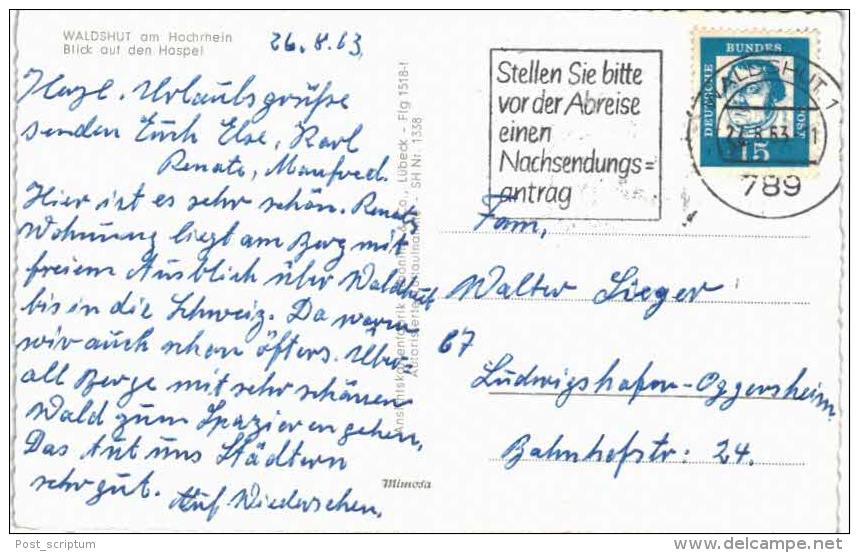 WALDSHUT am Hochrhein
Blick auf den Haspel
26.8.63.
Herzl. Urlaubsgrüße
senden Euch Else, Karl
Renate, Manfred.
Hier ist es sehr schön. Renates
Wohnung liegt am Berg mit
freiem Ausblick über Waldshut
bis in die Schweiz. Da waren
wir auch schon öfters. Über-
all Berge mit sehr schönen
Wald zum Spazieren gehen,
Das tut uns Städtern
sehr gut. Auf Wiedersehen.
Ansichtskartenfabrik Schöning & Co., Lübeck - Flg 1518-f
SH Nr. 1338
Mimosa
Stellen Sie bitte
vor der Abreise
einen
Nachsendungs=
antrag
DEUTSCHE BUNDESPOST
15
WALDSHUT 1
27.8.63
789
Fam,
Walter Sieger
67
Ludwigshafen-Oggersheim.
Bahnhofstr: 24.
Post_scriptum
www.delcampe.net